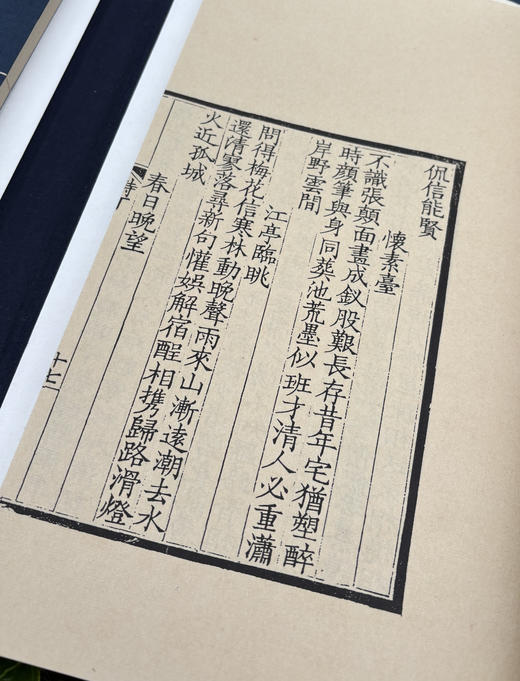 侃信能賢
懷素臺
不識張顛面畫成釵股艱長存昔年宅猶塑醉
時顏筆與身同葬池荒墨似班才清人必重瀟
岸野雲間
江亭臨眺
問得梅花信寒林動晚聲雨來山漸遠潮去水
還清寥落尋新句懽娛解宿酲相携歸路滑燈
火近孤城
春日晚望
十七